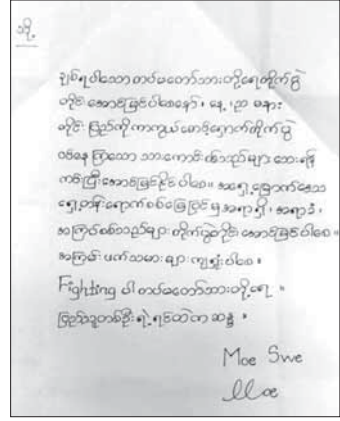 သို့
ချစ်ရပါသော တပ်မတော်သားတို့ရေ တိုက်ပွဲ
တိုင်း အောင်မြင်ပါစေနော်၊ နေ့၊ ည မနား
တိုင်းပြည်ကို ကာကွယ်စောင့်ရှောက်တိုက်ပွဲ
ဝင်နေကြသော သားကောင်းစစ်သည်များ ဘေးရန်
ကင်းပြီး အောင်မြင်နိုင်ပါစေ။ အရှေ့မြောက်ဒေသ
ရှေ့တန်းရောက် စစ်မြေပြင်မှ အရာရှိ၊ အရာခံ၊
အကြပ်စစ်သည်များ တိုက်ပွဲတိုင်း အောင်မြင်ပါစေ။
အကြမ်းဖက်သမားများ ကျရှုံးပါစေ။
Fighting ပါ တပ်မတော်သားတို့ရေ ။
ပြည်သူတစ်ဦးရဲ့ ရင်ထဲက ဆန္ဒ ။
Moe Swe
Moe